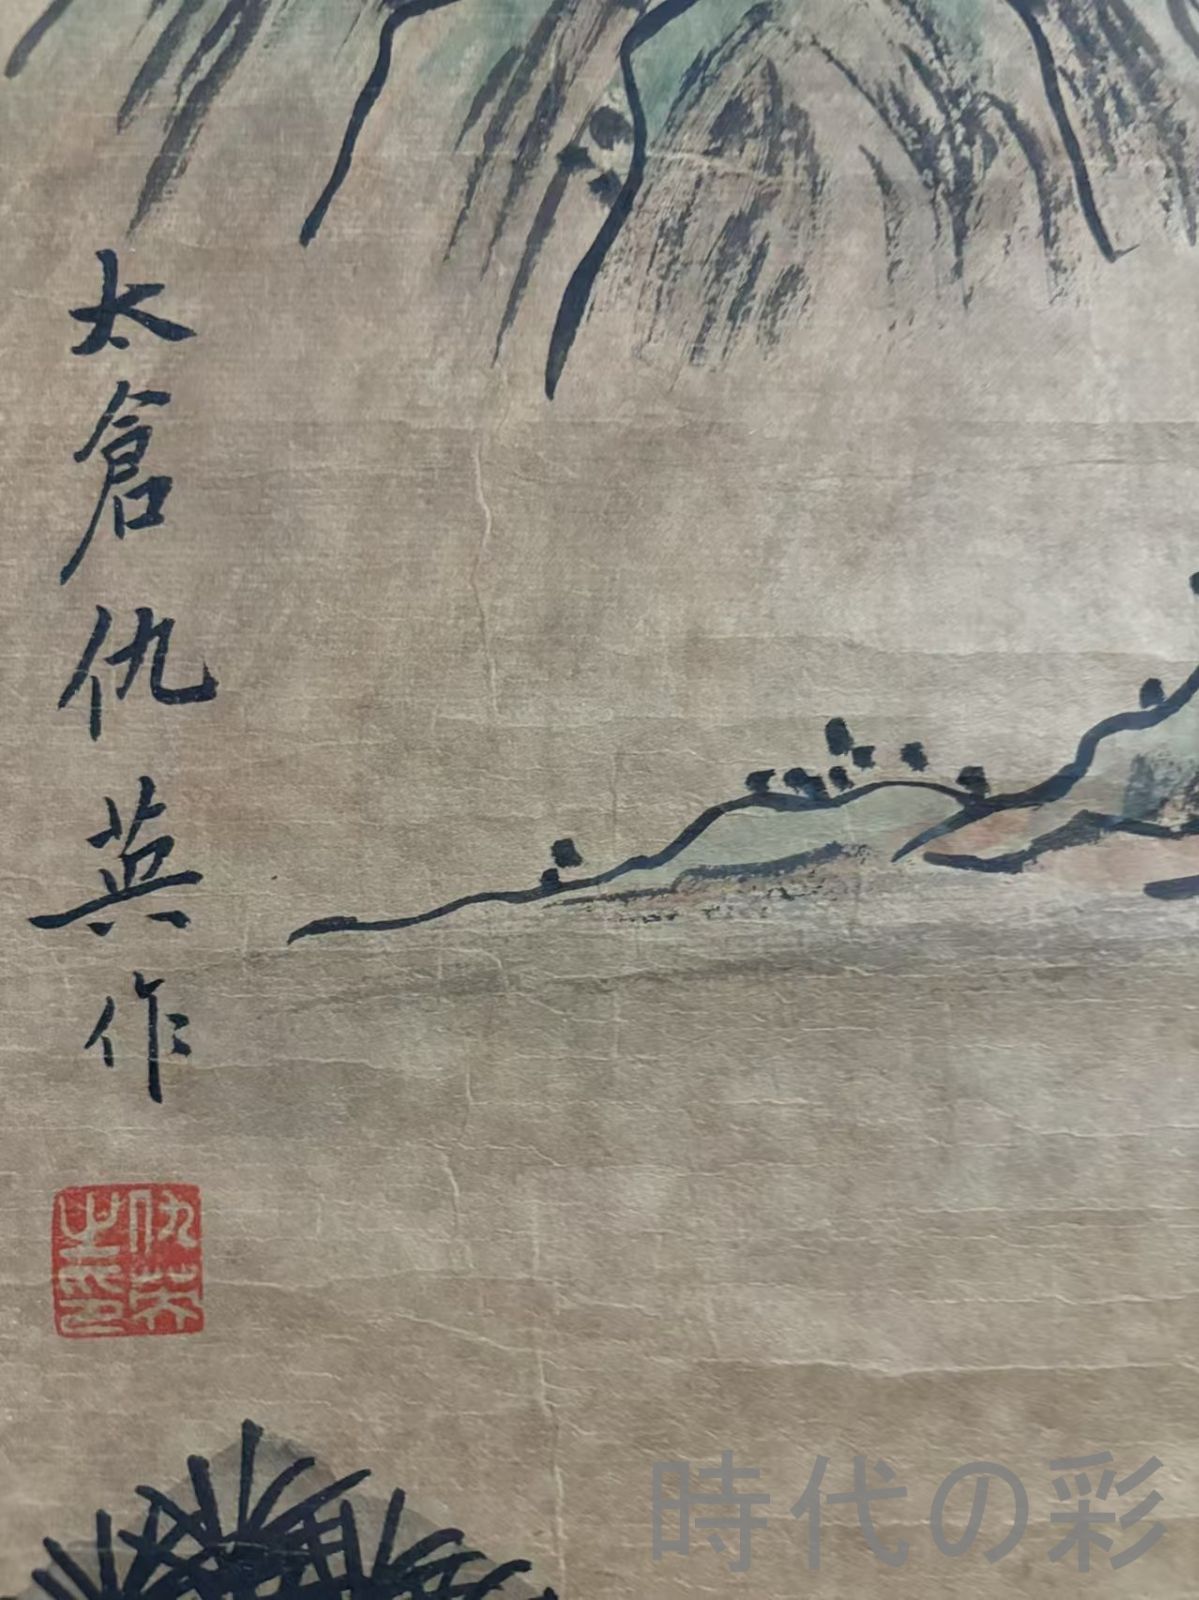 太倉仇英作
仇英之印
時代の彩